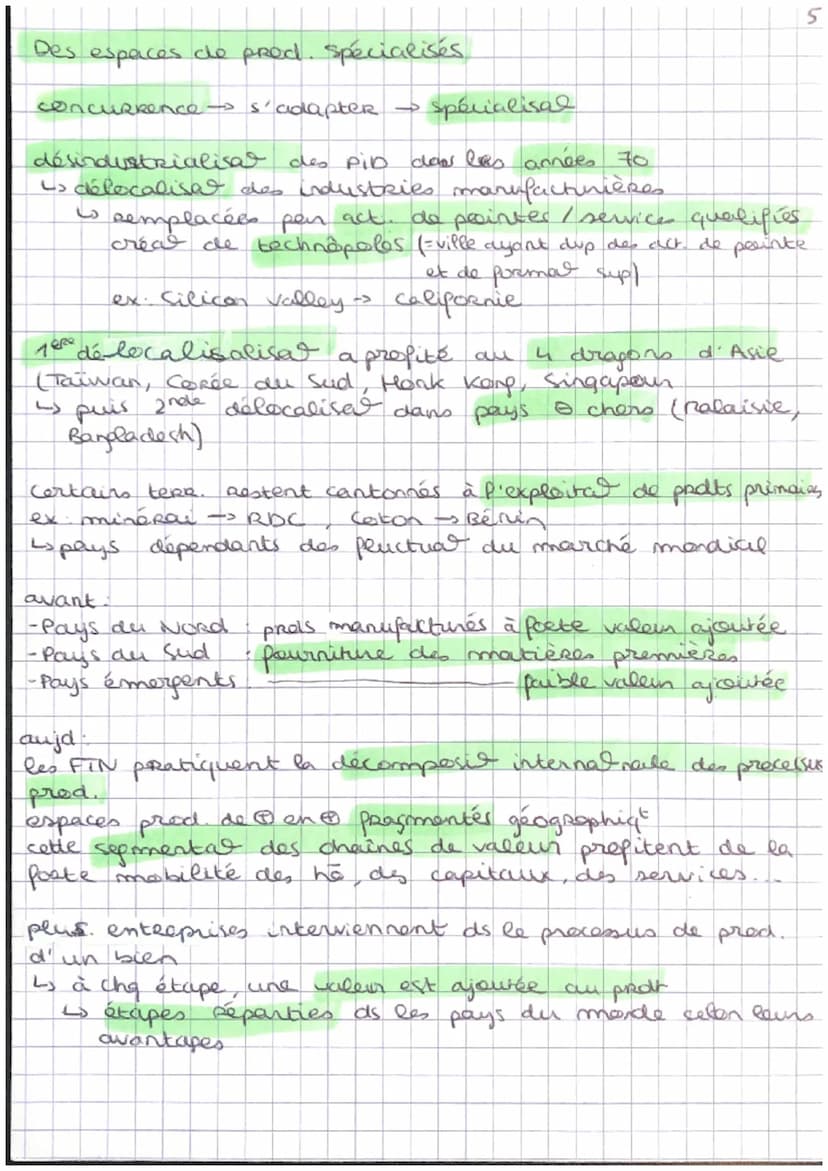 5
Des espaces de prod. spécialisés
concurrence → s'adapter → spécialisat°
désindustrialisat° des PID dans les années 70
↳ délocalisat° des industries manufacturières
↳ remplacées par act. de pointes / services qualifiés
créat° de technopoles (= ville ayant dvp des act. de pointe
et de format° sup)
ex: Silicon Valley → Californie
1ère délocalisalisat° a profité au 4 dragons d'Asie
(Taïwan, Corée du Sud, Honk Kong, Singapour
↳ puis 2nde délocalisat° dans pays ⊖ chers (Malaisie,
Bangladesh)
Certains terr. restent cantonnés à l'exploitat° de prdts primaires
ex: minérai → RDC, Coton → Bénin
↳ pays dépendants des fluctuat° du marché mondial
avant:
- Pays du Nord : prdts manufacturés à forte valeur ajoutée
- Pays du Sud : fourniture des matières premières
- Pays émergents ———— faible valeur ajoutée
aujd:
les FTN pratiquent la décomposit° internat°nale des processus
prod.
espaces prod. de ⊕ en ⊕ fragmentés géographiqt
cette segmentat° des chaînes de valeur profitent de la
forte mobilité des hō, des capitaux, des services...
plus. entreprises interviennent ds le processus de prod.
d'un bien
↳ à chq étape, une valeur est ajoutée au prdt
↳ étapes réparties ds les pays du monde selon leurs
avantages